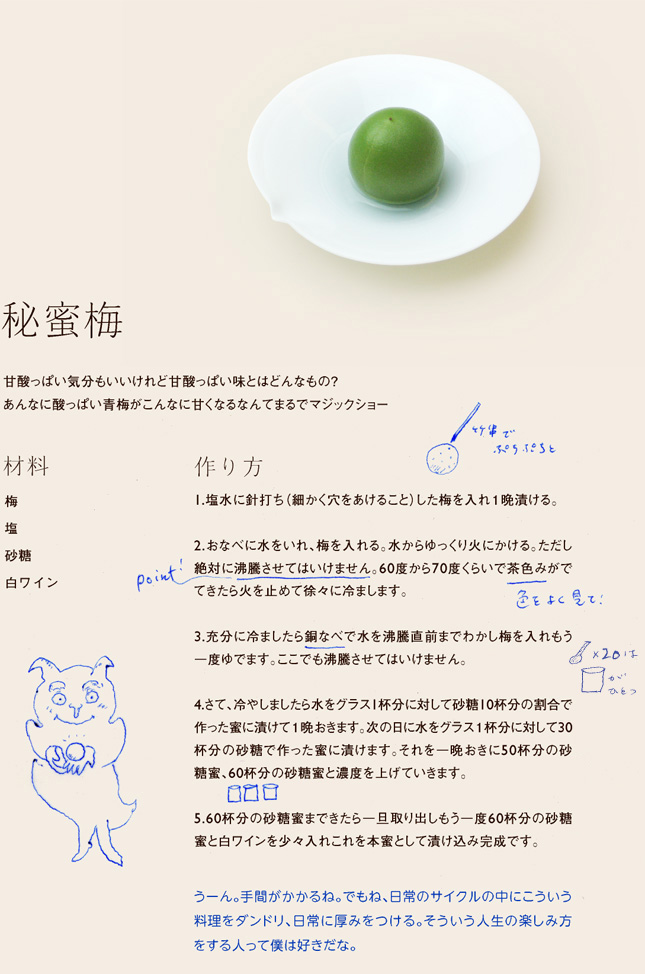 秘蜜梅
甘酸っぱい気分もいいけれど甘酸っぱい味とはどんなもの?
あんなに酸っぱい青梅がこんなに甘くなるなんてまるでマジックショー
材料
梅
塩
砂糖
白ワイン
作り方
竹串で
ぷちぷちと
1.塩水に針打ち(細かく穴をあけること)した梅を入れ1晩漬ける。
2.おなべに水をいれ、梅を入れる。水からゆっくり火にかける。ただし
絶対に沸騰させてはいけません。60度から70度くらいで茶色みがで
てきたら火を止めて徐々に冷まします。
point!
色をよく見て!
3.充分に冷ましたら銅なべで水を沸騰直前までわかし梅を入れもう
一度ゆでます。ここでも沸騰させてはいけません。
×20は
が
ひとつ
4.さて、冷やしましたら水をグラス1杯分に対して砂糖10杯分の割合で
作った蜜に漬けて1晩おきます。次の日に水をグラス1杯分に対して30
杯分の砂糖で作った蜜に漬けます。それを一晩おきに50杯分の砂
糖蜜、60杯分の砂糖蜜と濃度を上げていきます。
5.60杯分の砂糖蜜まできたら一旦取り出しもう一度60杯分の砂糖
蜜と白ワインを少々入れこれを本蜜として漬け込み完成です。
うーん。手間がかかるね。でもね、日常のサイクルの中にこういう
料理をダンドリ、日常に厚みをつける。そういう人生の楽しみ方
をする人って僕は好きだな。